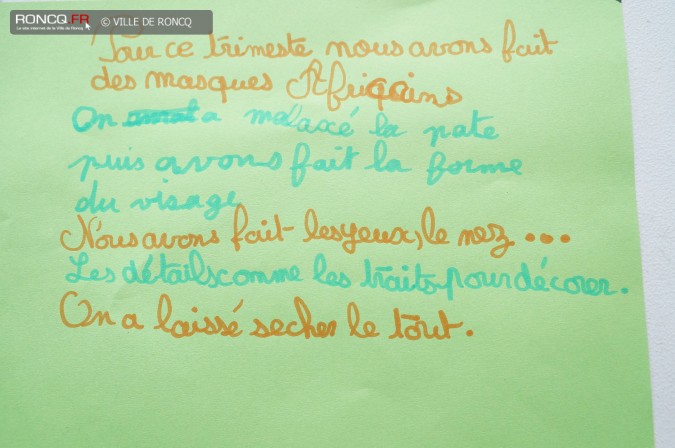 RONCQ.FR
Le site internet de la Ville de Roncq
© VILLE DE RONCQ
Pour ce trimeste nous avons fait
des masques Afriqains
On a malaxé la pate
puis avons fait la forme
du visage
Nous avons fait les yeux, le nez ...
Les détails comme les traits pour décorer.
On a laissé secher le tout.